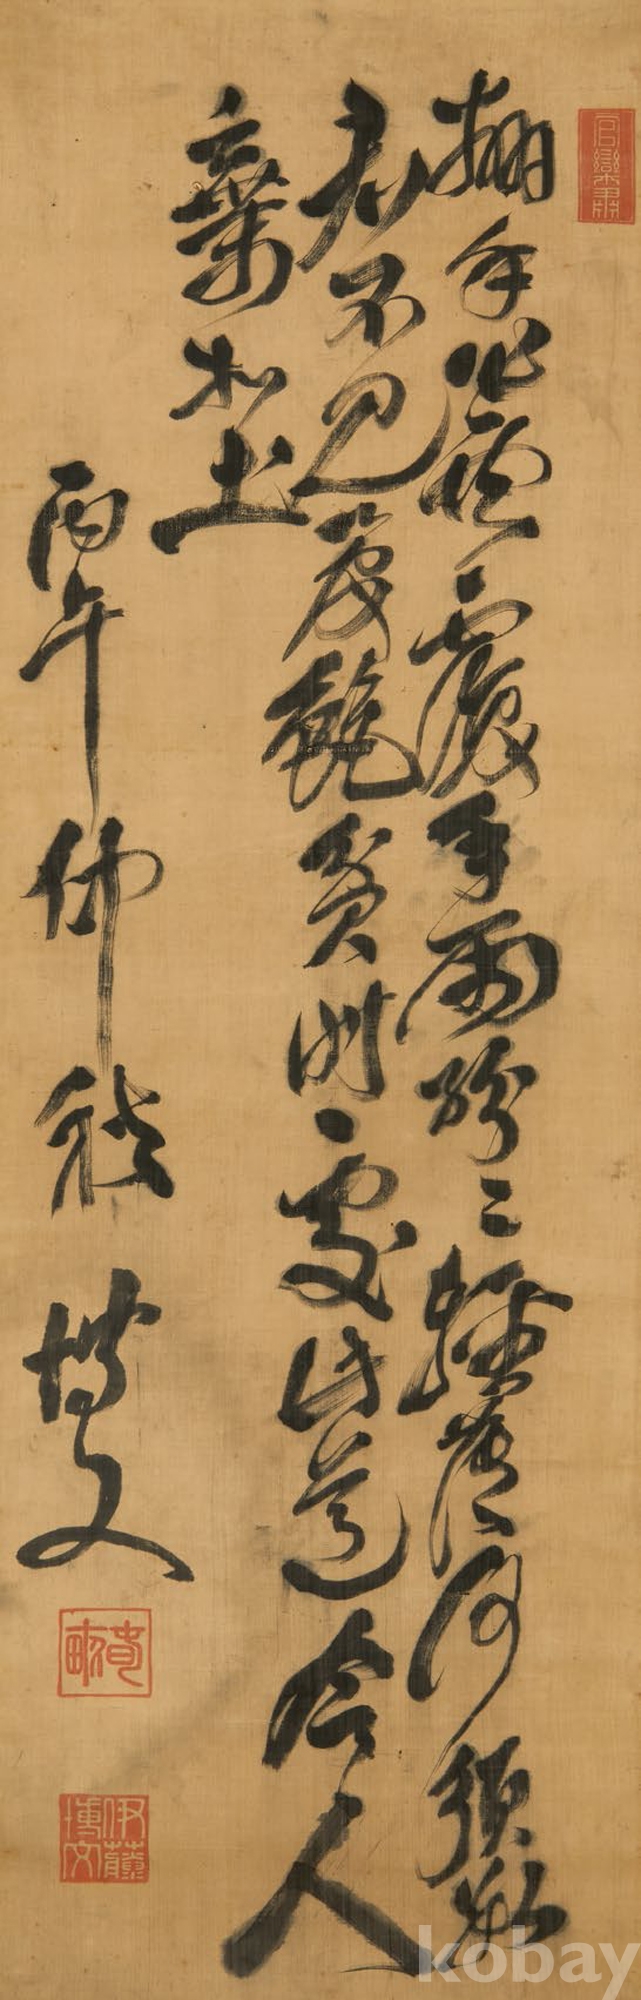 翻手作雲覆手雨紛〻輕薄何須数
君不見管鮑貧時交此道今人
棄如土
丙午仲秋 博文
伊藤博文
kobay